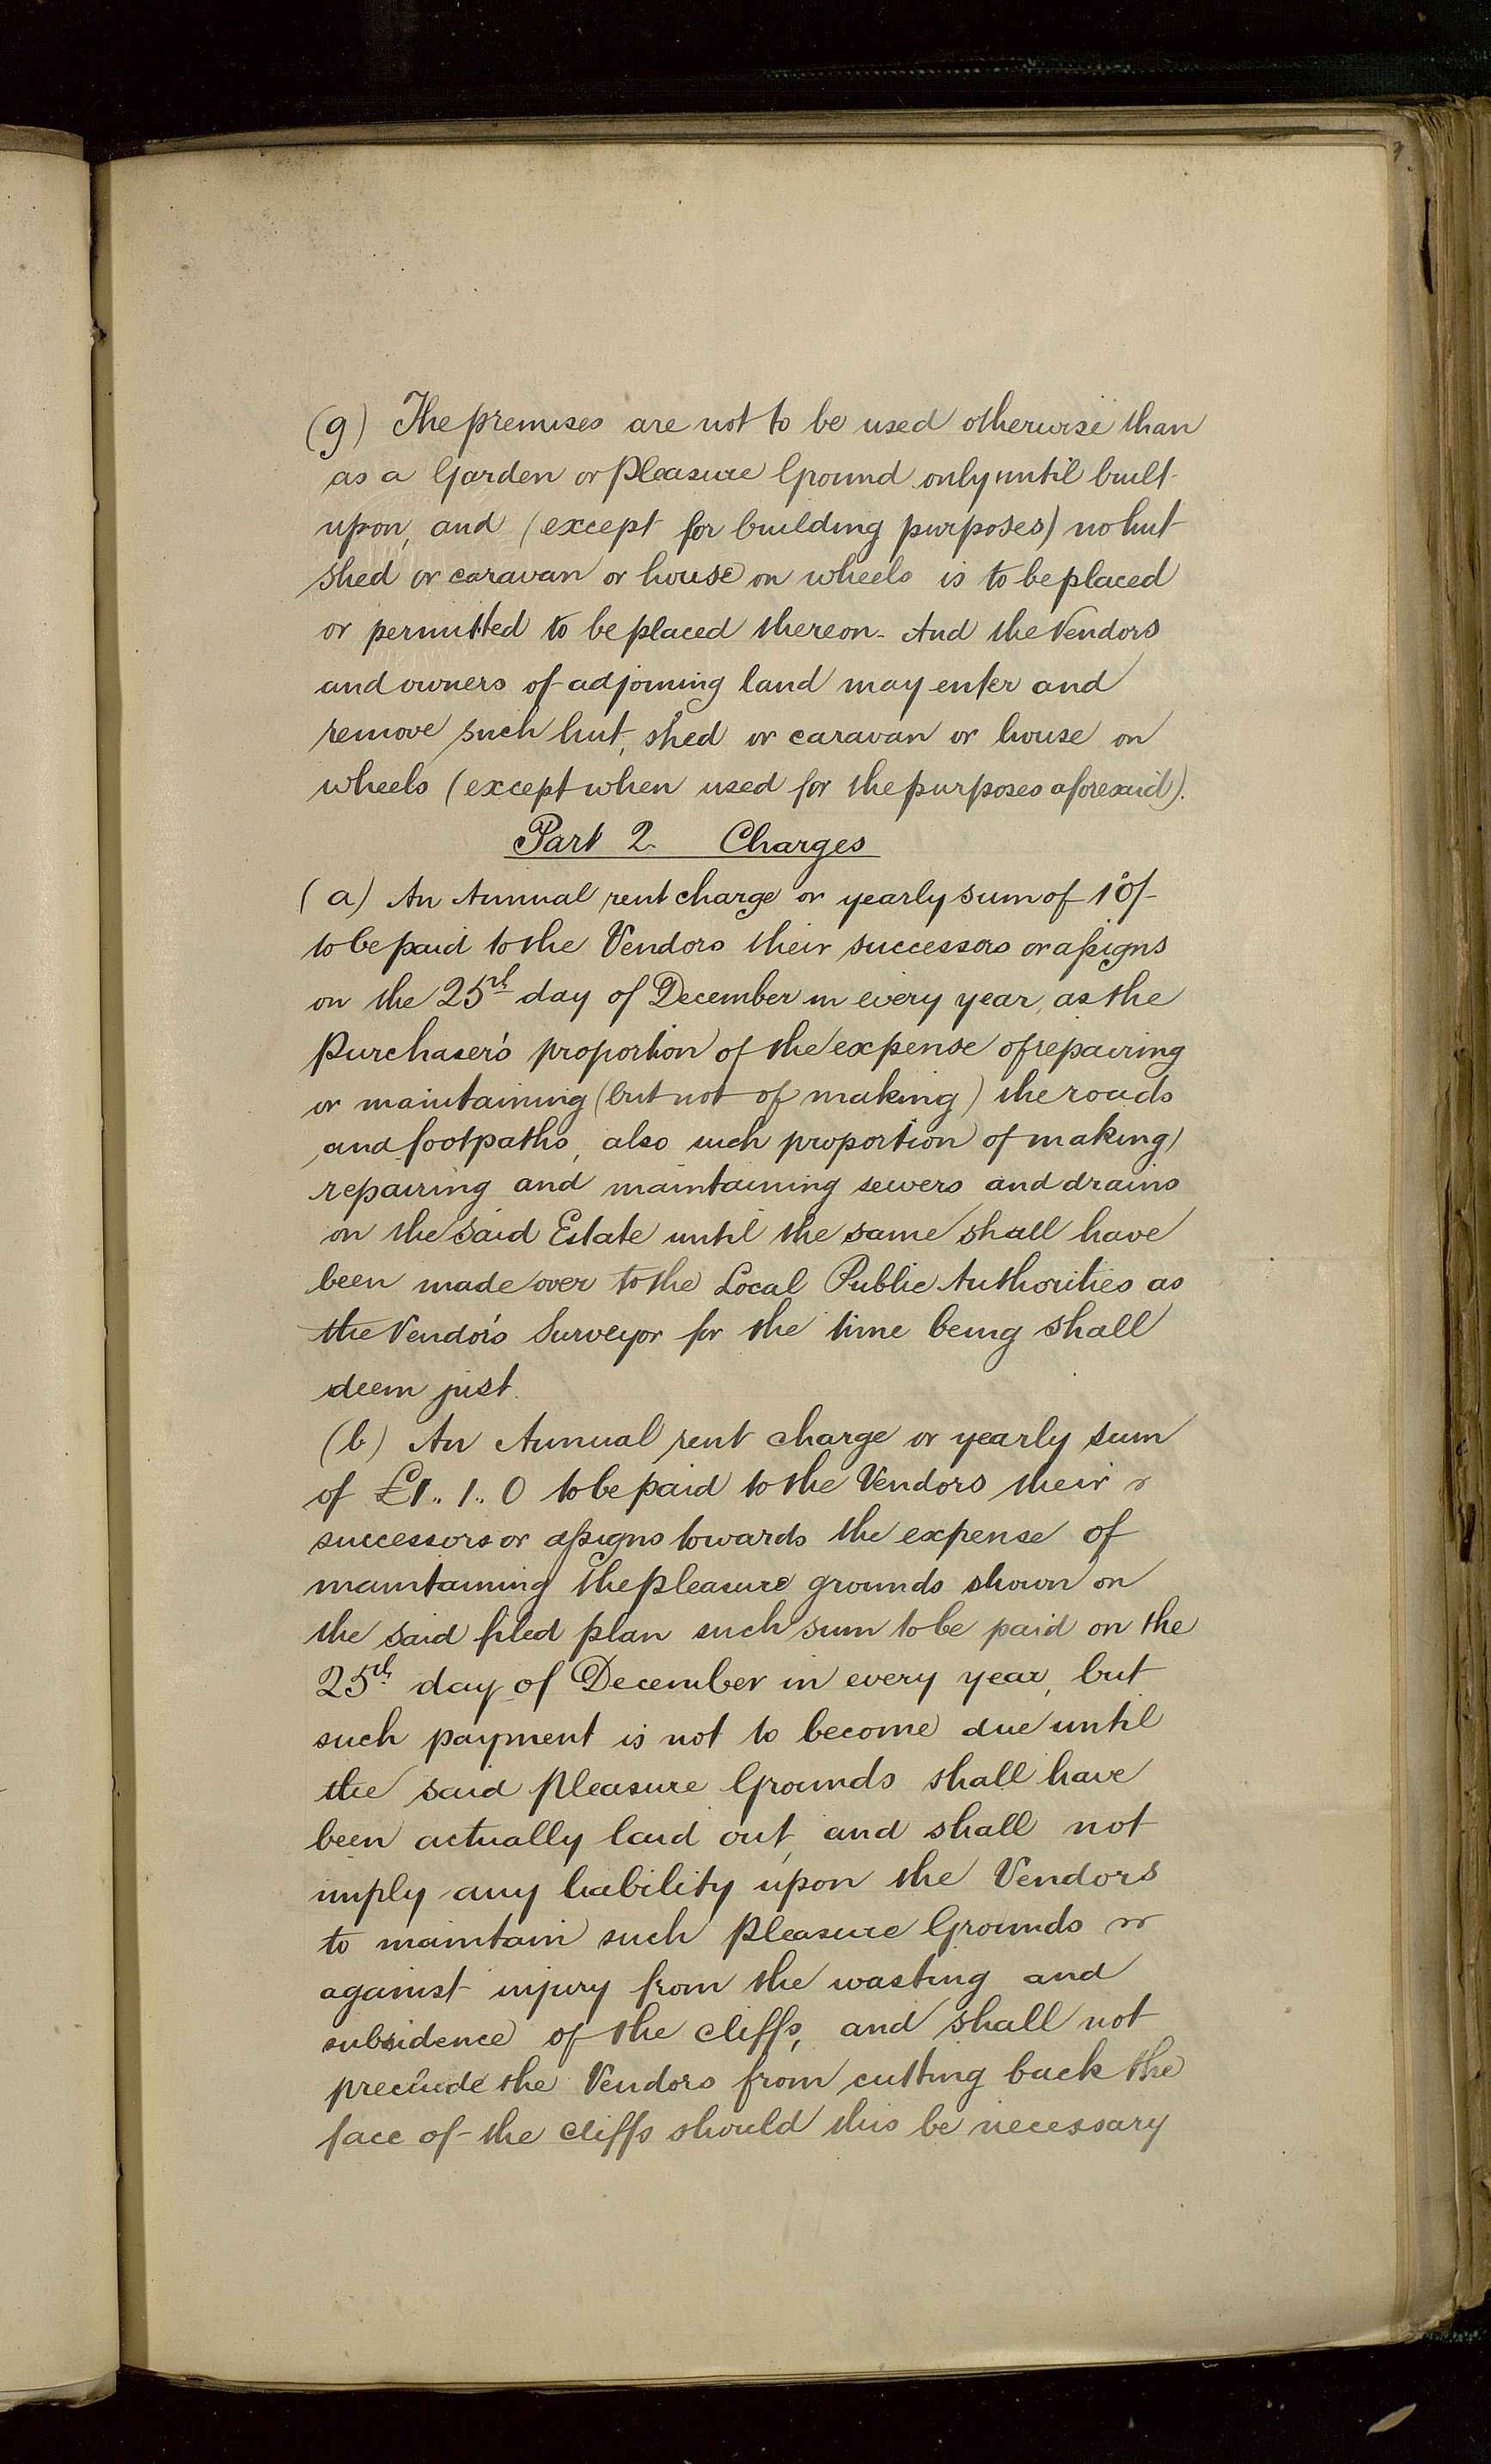 (g) The premises are not to be used otherwise than
as a Garden or Pleasure Ground only until built
upon, and (except for building purposes) no hut
shed or caravan or house on wheels is to be placed
or permitted to be placed thereon. And the Vendors
and owners of adjoining land may enter and
remove such hut, shed or caravan or house on
wheels (except when used for the purposes aforesaid).
Part 2 Charges
(a) An Annual rent charge or yearly sum of 10/-
to be paid to the Vendors their successors or assigns
on the 25th day of December in every year, as the
Purchaser's proportion of the expense of repairing
or maintaining (but not of making) the roads
and footpaths, also such proportion of making
repairing and maintaining sewers and drains
on the said Estate until the same shall have
been made over to the Local Public Authorities as
the Vendor's Surveyor for the time being shall
deem just.
(b) An Annual rent charge or yearly sum
of £1.. 1.. 0 to be paid to the Vendors their
successors or assigns towards the expense of
maintaining the pleasure grounds shown on
the said filed plan such sum to be paid on the
25th day of December in every year, but
such payment is not to become due until
the said Pleasure Grounds shall have
been actually laid out, and shall not
imply any liability upon the Vendors
to maintain such Pleasure Grounds or
against injury from the wasting and
subsidence of the cliffs, and shall not
preclude the Vendors from cutting back the
face of the cliffs should this be necessary